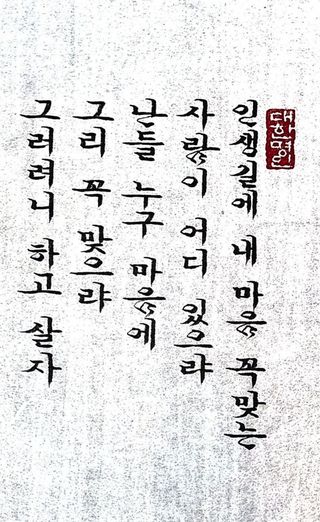 대한명인
인생길에 내 마음 꼭맞는
사람이 어디 있으랴
난들 누구 마음에
그리 꼭 맞으랴
그러려니 하고 살자